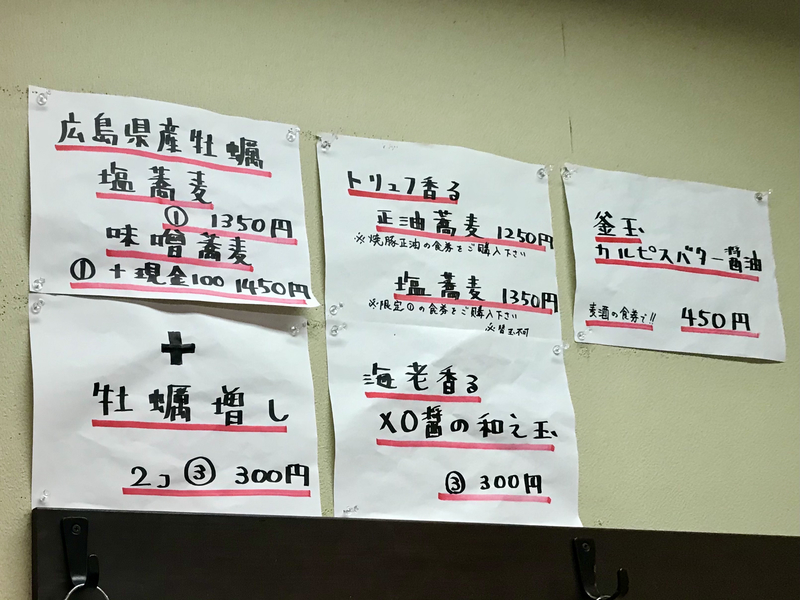 広島県産牡蠣
塩蕎麦
① 1350円
味噌蕎麦
①+現金100 1450円
+
牡蠣増し
2コ ③ 300円
トリュフ香る
正油蕎麦 1250円
※焼豚正油の食券をご購入下さい
塩蕎麦 1350円
※限定①の食券をご購入下さい
※替玉不可
海老香る
XO醤の和え玉
③ 300円
釜玉
カルピスバター醤油
麦酒の食券で!! 450円